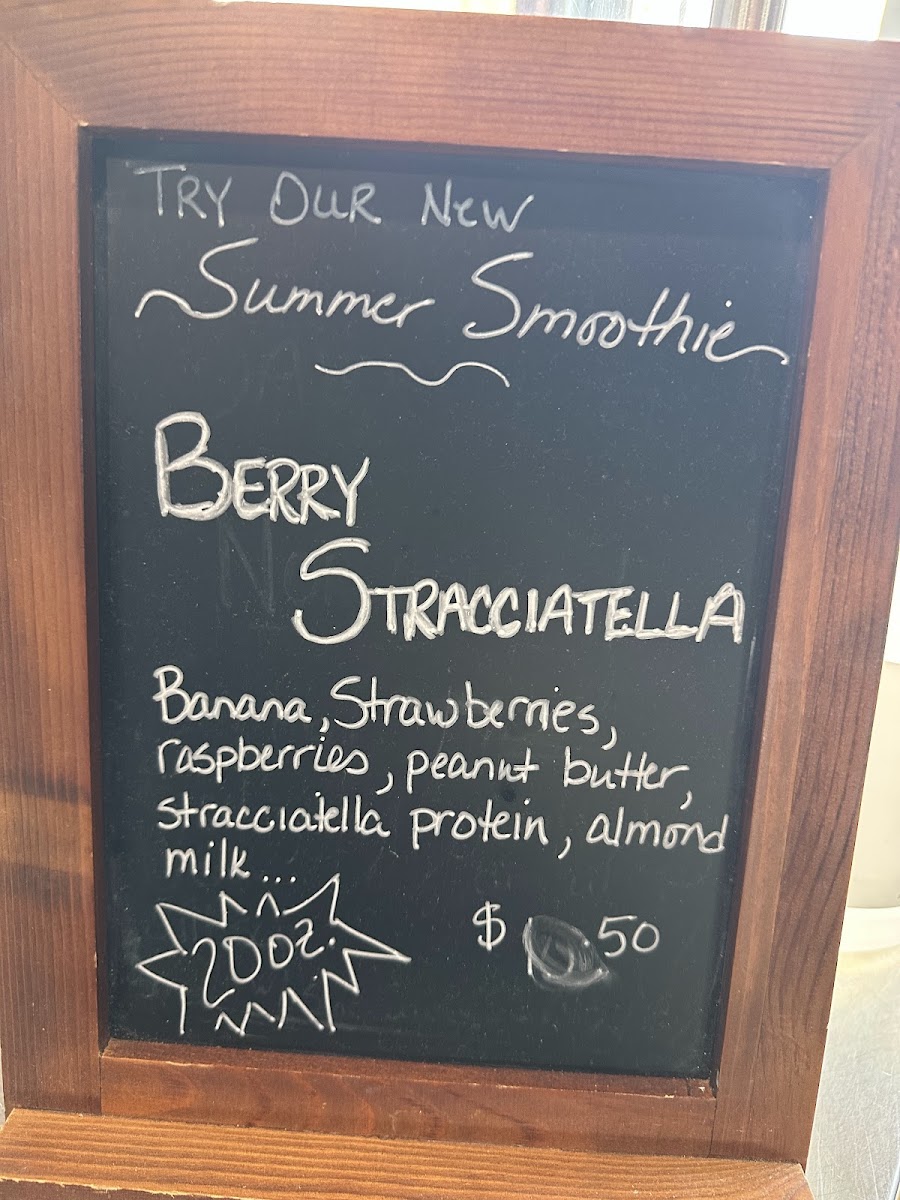 TRY OUR New
Summer Smoothie
BERRY
STRACCIATELLA
Banana, Strawberries,
raspberries, peanut butter,
stracciatella protein, almond
milk...
20oz.
$ 50